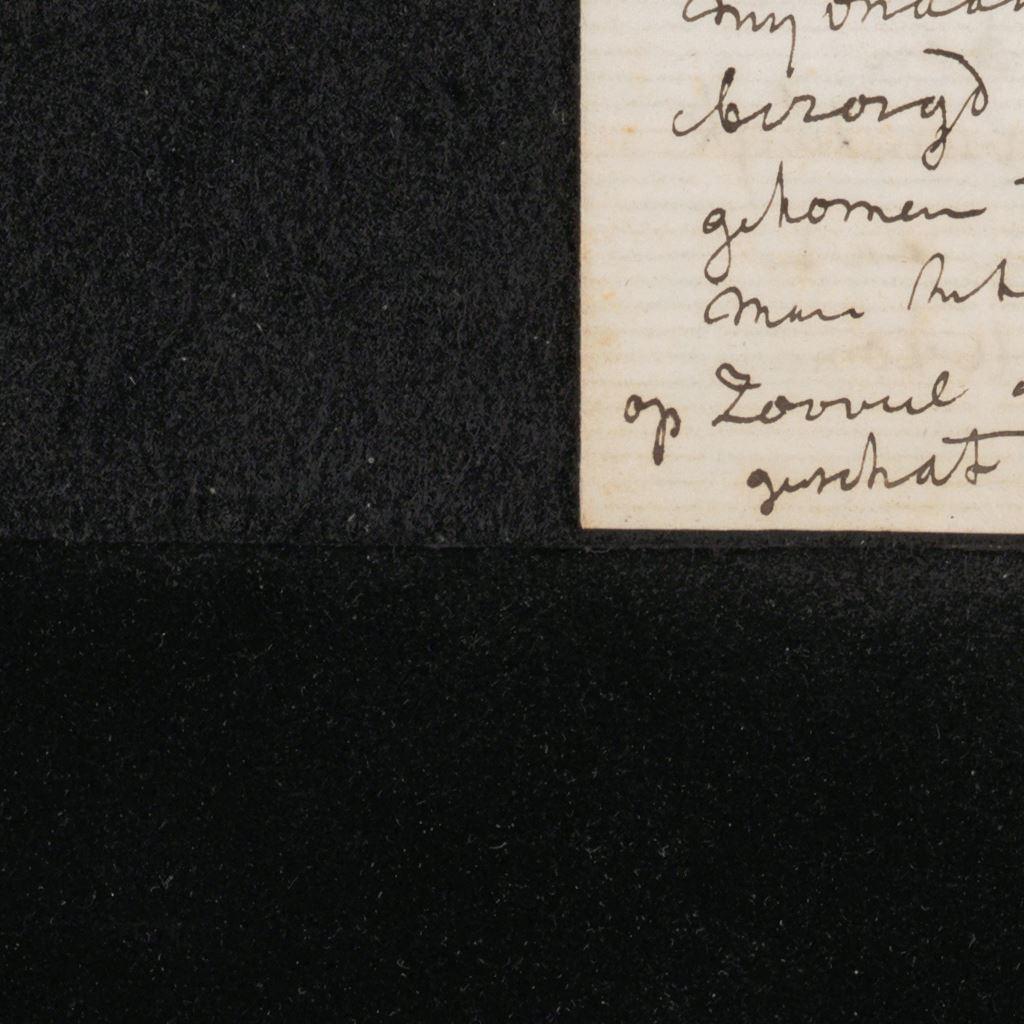 my
bezorgd
gekomen
man
op Zooveel
geschat